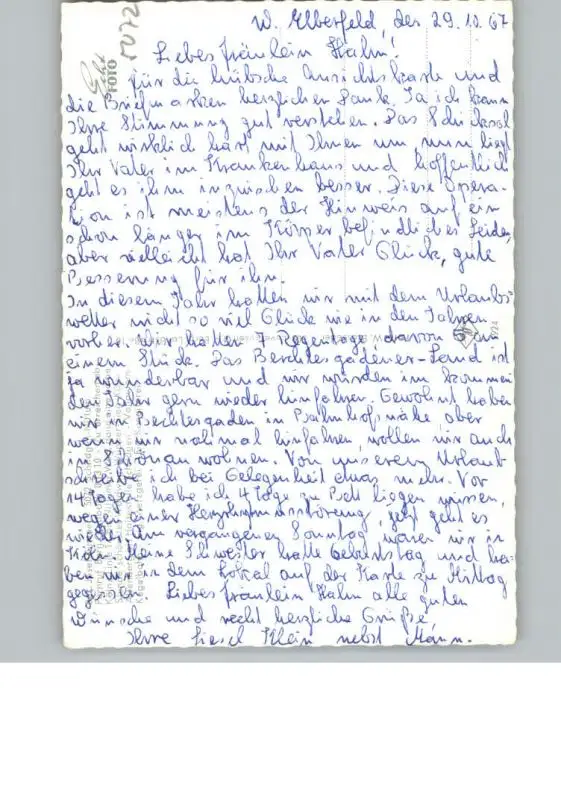 W. Elberfeld, den 29.10.67
Liebes Fräulein Hahn!
Für die hübsche Ansichtskarte und
die Briefmarken herzlichen Dank. Ja ich kann
Ihre Stimmung gut verstehen. Das Schicksal
geht wirklich hart mit Ihnen um, nun liegt
Ihr Vater im Krankenhaus und hoffentlich
geht es ihm inzwischen besser. Diese Opera-
tion ist meistens der Hinweis auf ein
schon länger im Körper befindliches Leiden,
aber vielleicht hat Ihr Vater Glück, gute
Besserung für ihn.
In diesem Jahr hatten wir mit dem Urlaubs-
wetter nicht so viel Glück wie in den Jahren
vorher. Wir hatten 7 Regentage davon 5 in
einem Stück. Das Berchtesgadener-Land ist
ja wunderbar und wir würden im kommen
den Jahr gern wieder hinfahren. Gewohnt haben
wir in Berchtesgaden in Bahnhofsnähe aber
wenn wir nohmal hinfahren, wollen wir auch
in Schönau wohnen. Von unserem Urlaub
schreibe ich bei Gelegenheit etwas mehr. Vor
14 Tagen habe ich 4 Tage zu Bett liegen müssen,
wegen einer Herzrhythmusstörung, jetzt geht es
wieder. Am vergangenen Sonntag waren wir in
Köln. Meine Schwester hatte Geburtstag und ha-
ben wir in dem Lokal auf der Karte zu Mittag
gegessen. Liebes Fräulein Hahn alle guten
Wünsche und recht herzliche Grüße,
Ihre Liesel Klein nebst Mann.
Echt
FOTO
5072